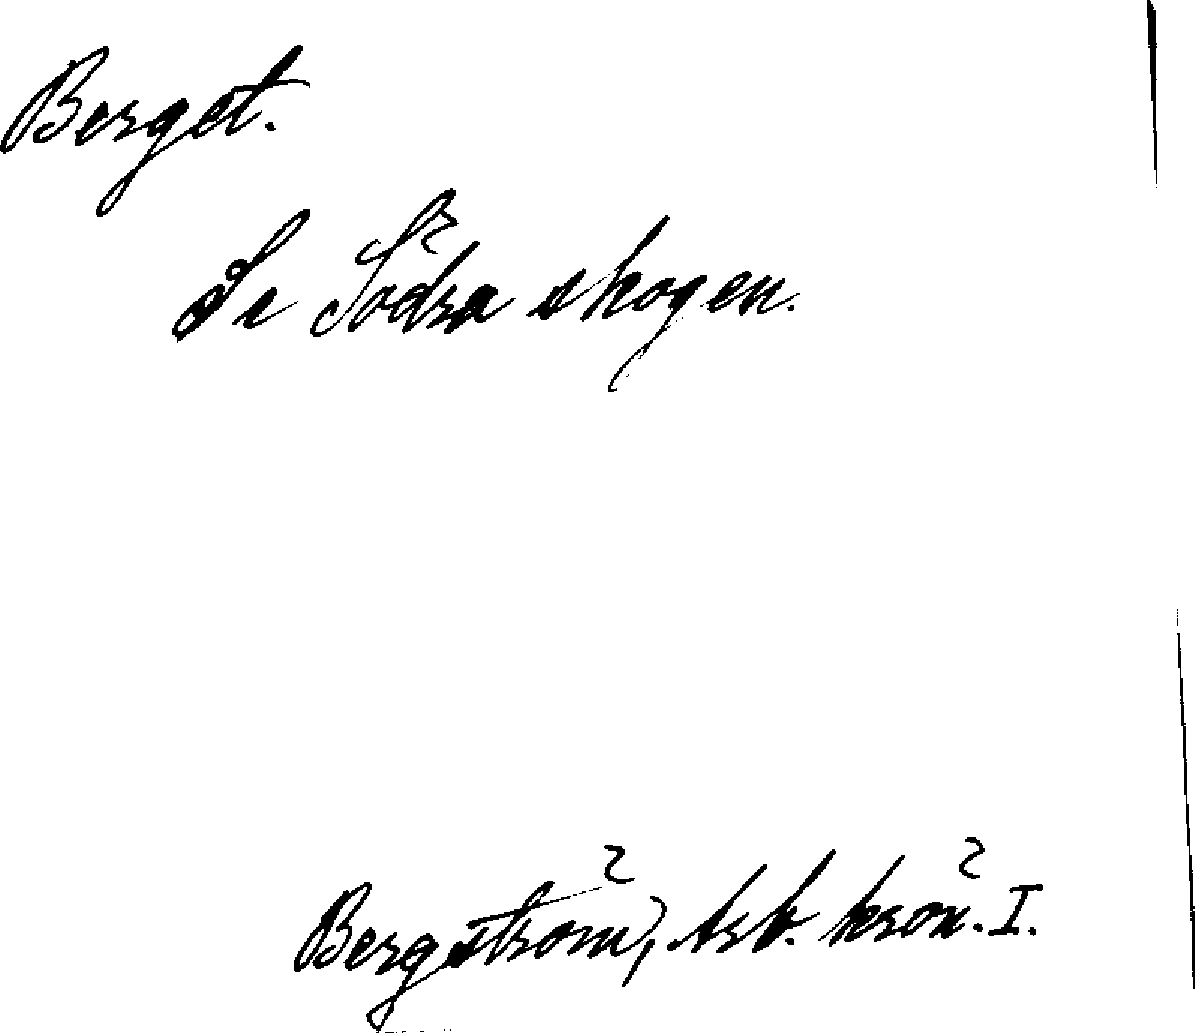 Berget.
Se Södra skogen.
Bergström, Arb. krön. I.